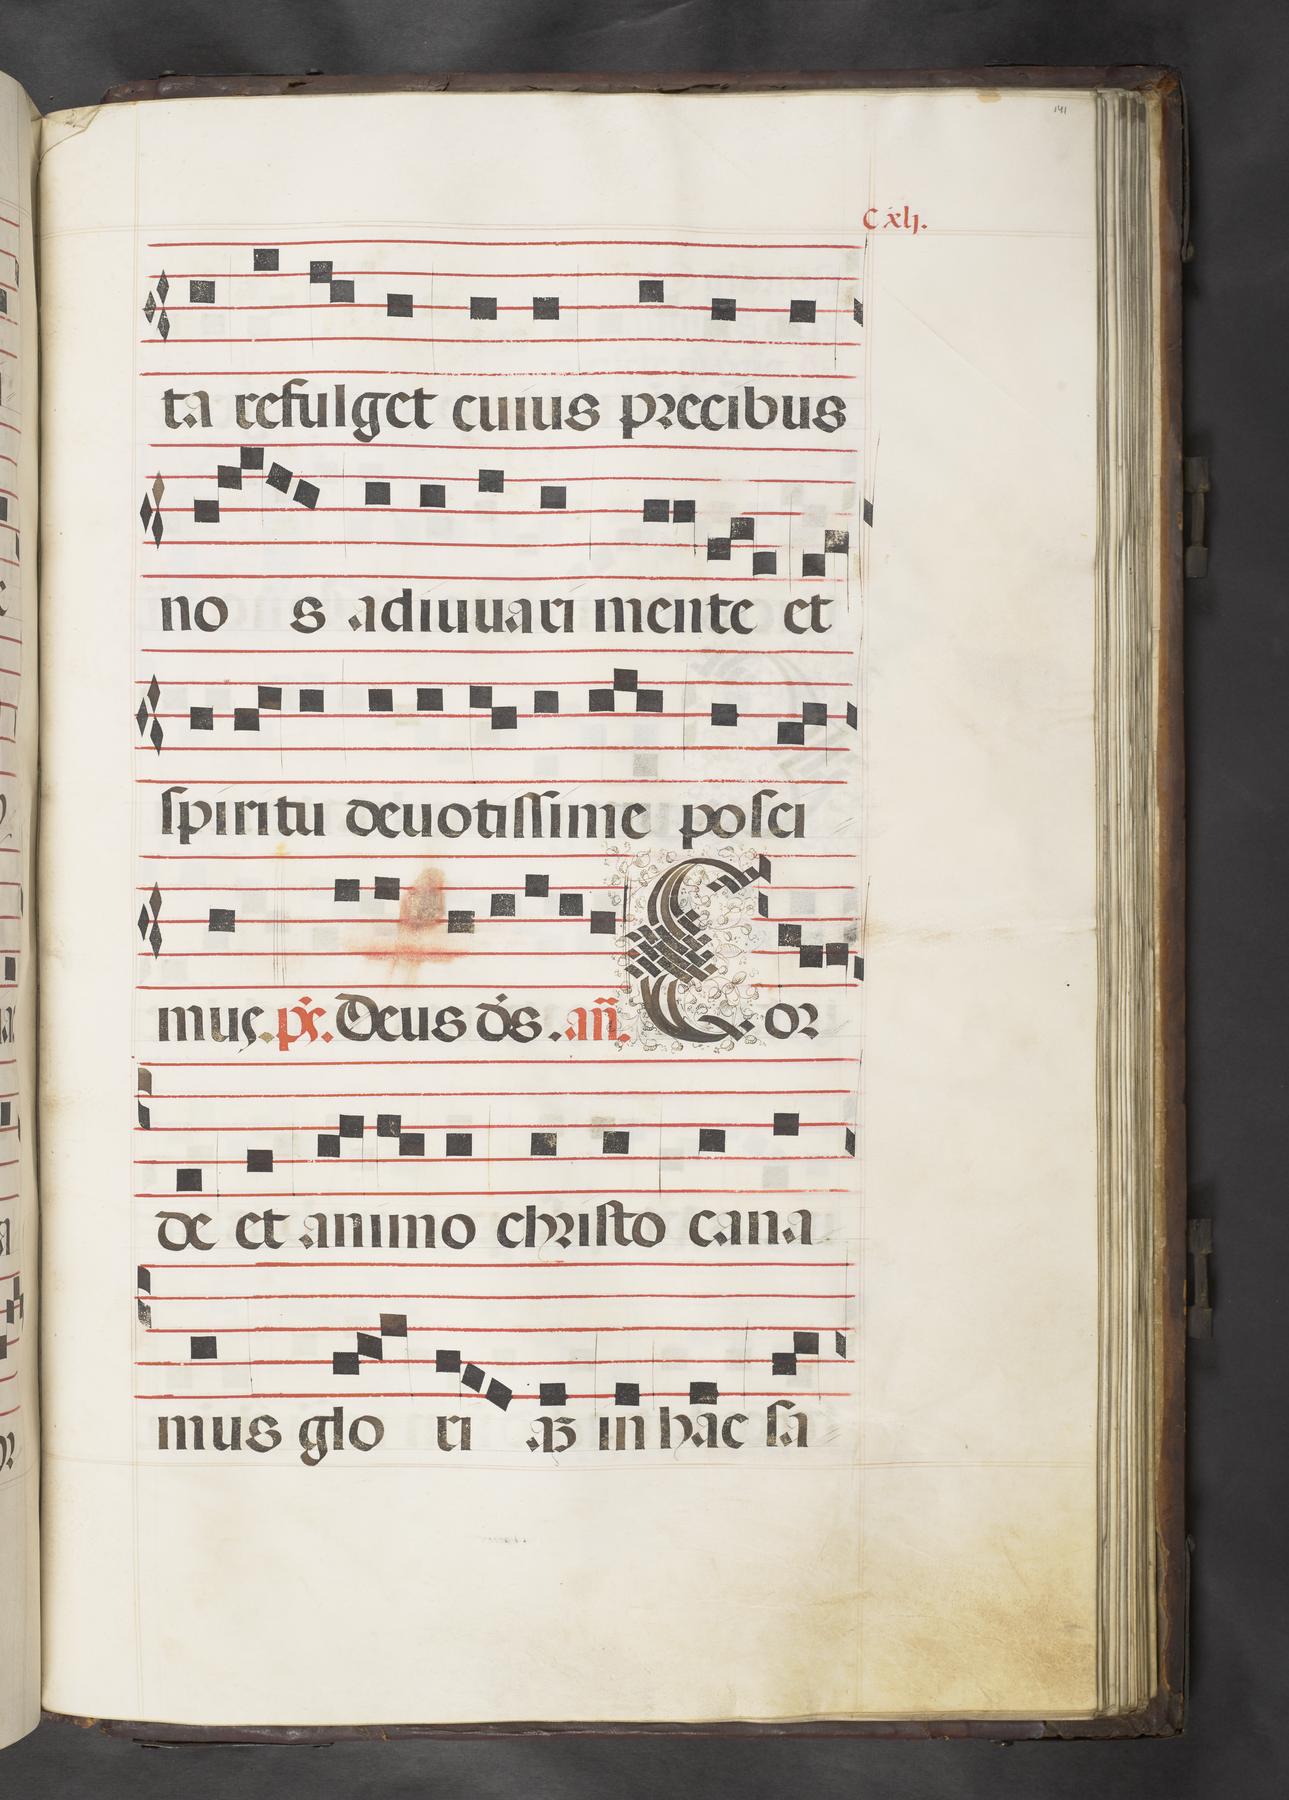 141
Cxlj.
ta refulget cuius precibus
no s adiuuari mente et
spiritu deuotissime posci
mus. ps. Deus ds. añ. Cor
de et animo christo cana
mus glo ri aʒ in hac sa